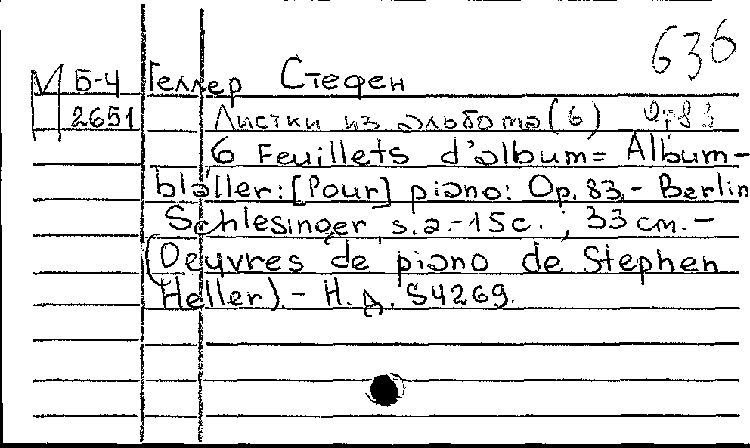 636
М Б-4 Геллер Стефен
2651 Листки из альбома (6) Op 83
6 Feuillets d'album = Album-
blätter: [Pour] piano: Op. 83. - Berlin
Schlesinger s.a. - 15 c.; 33 см. -
(Oeuvres de piano de Stephen
Heller). - Н. д. S4269.